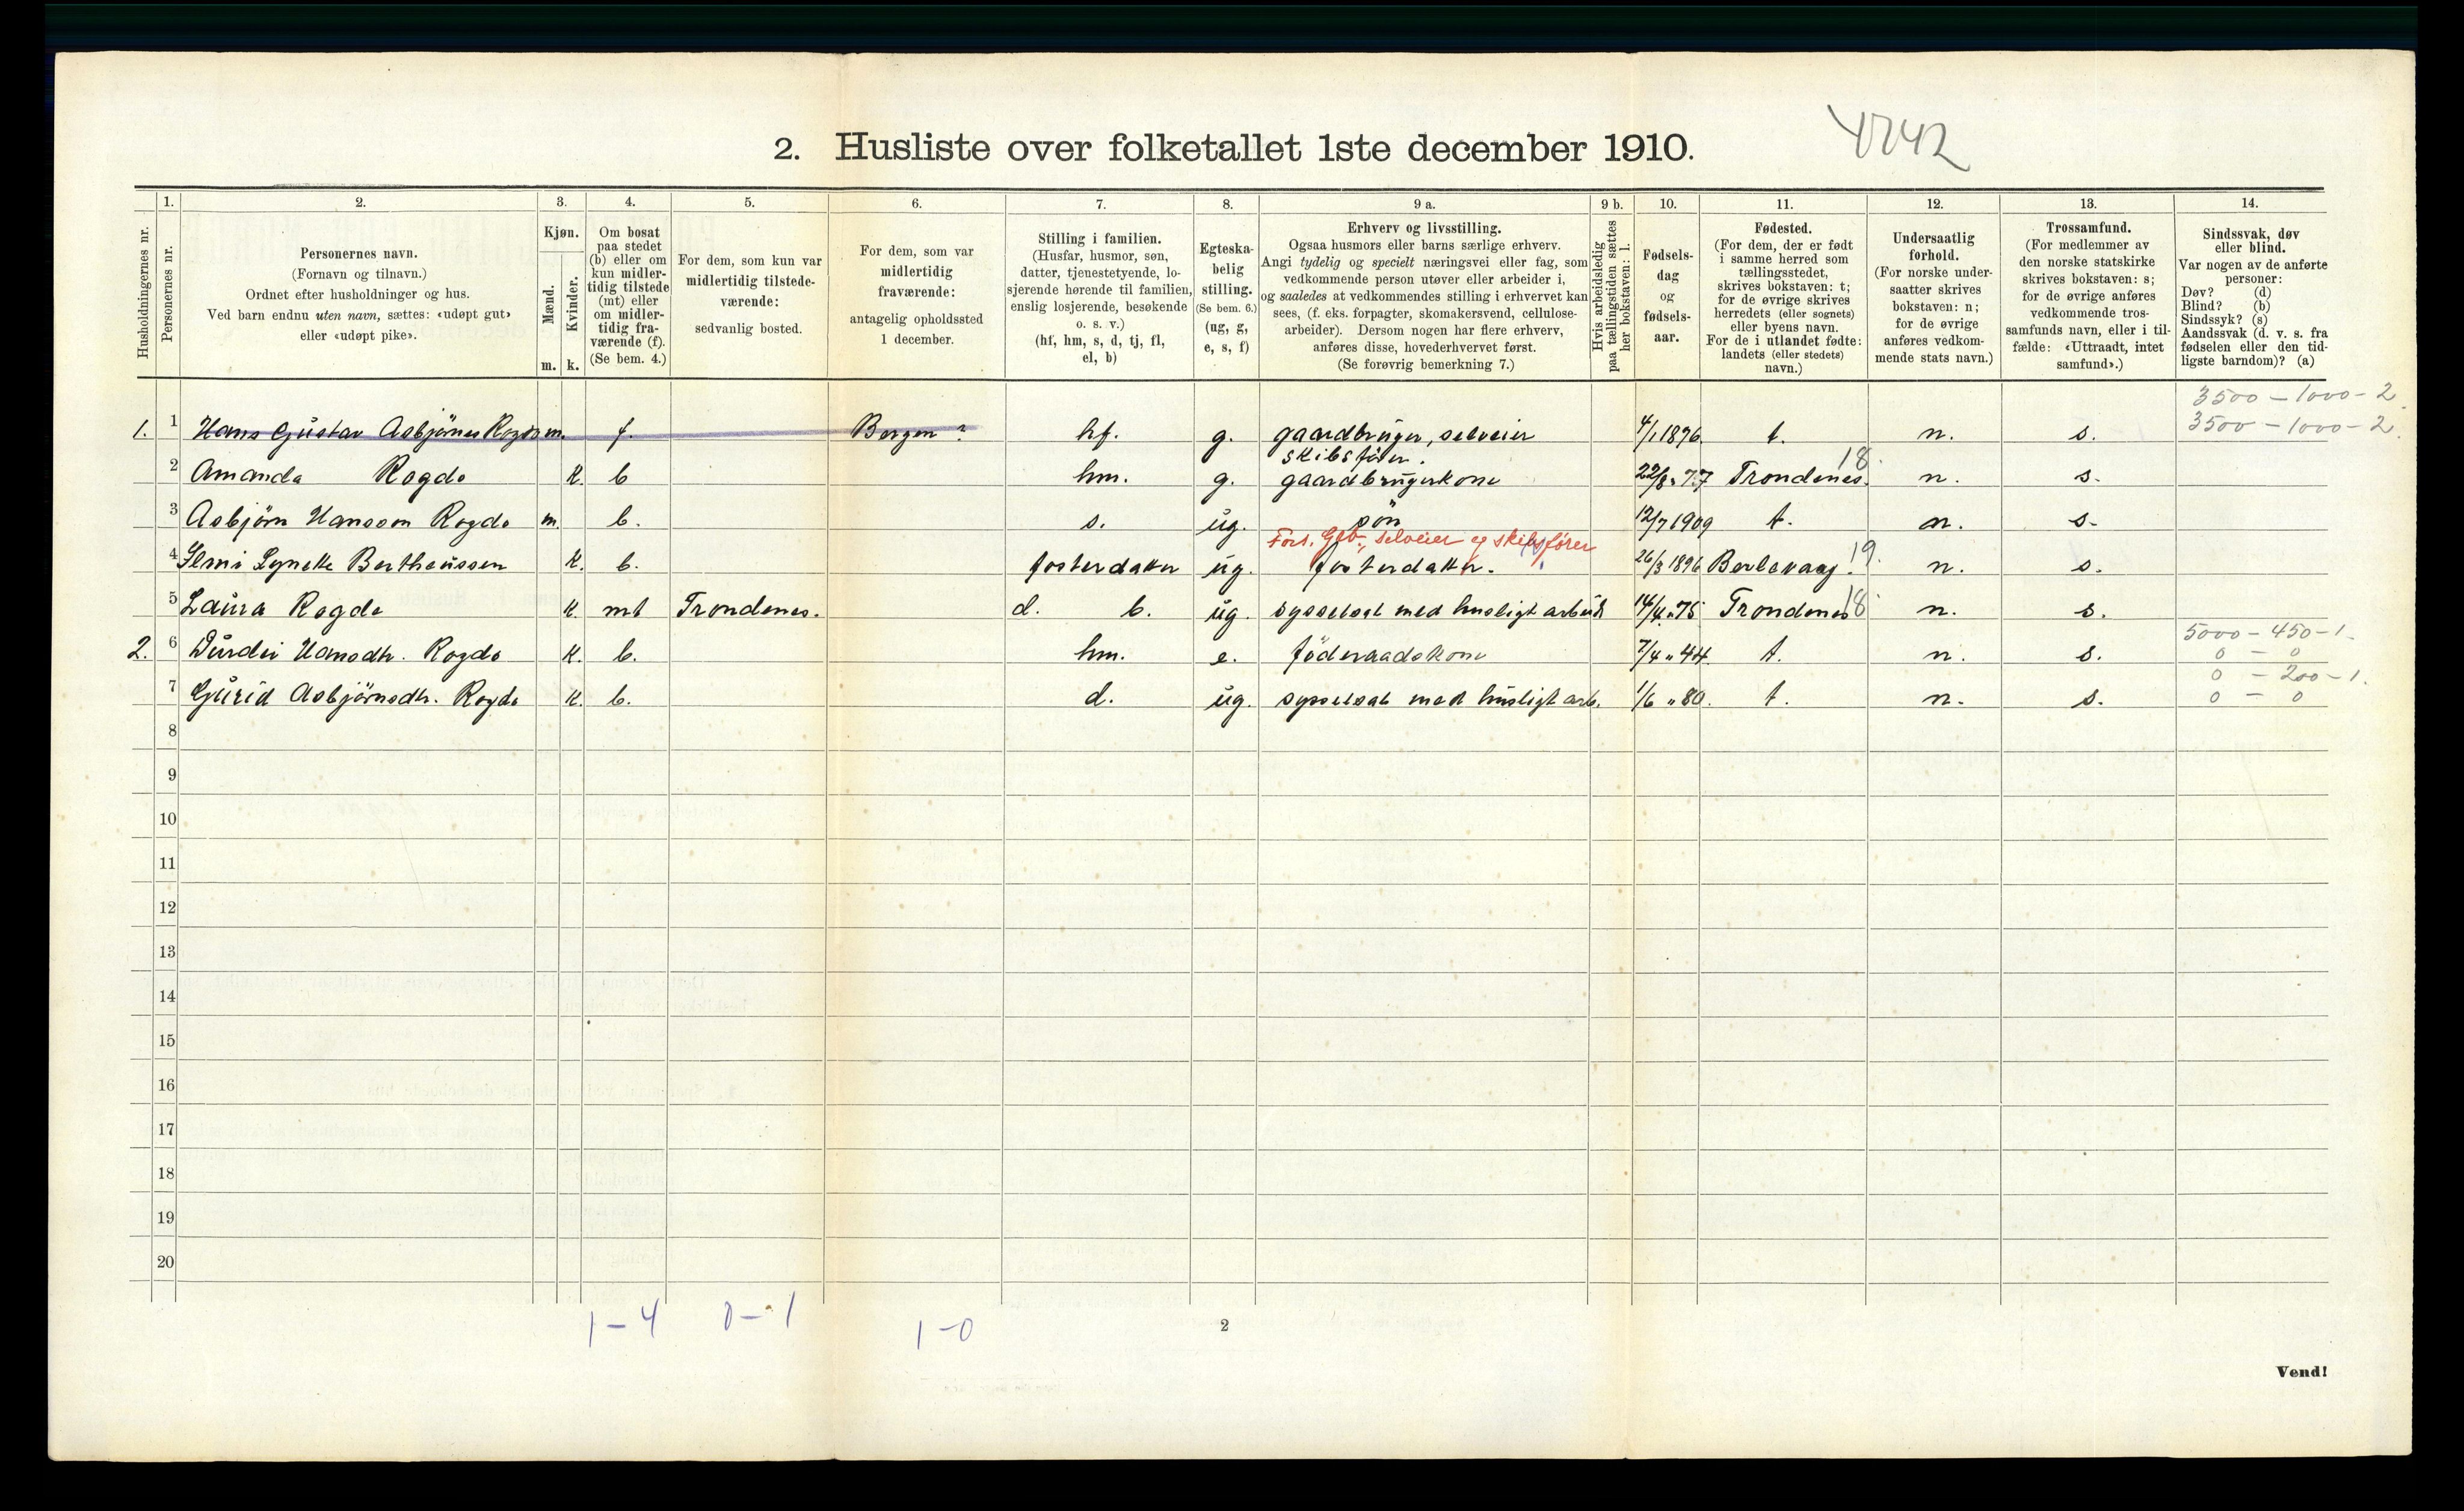 2. Husliste over folketallet 1ste december 1910.
4742
Husholdningernes nr.
1.
Personernes nr.
2.
Personernes navn.
(Fornavn og tilnavn.)
Ordnet efter husholdninger og hus.
Ved barn endnu uten navn, sættes: «udøpt gut»
eller «udøpt pike».
3.
Kjøn.
Mænd.
Kvinder.
m. k.
4.
Om bosat
paa stedet
(b) eller om
kun midler-
tidig tilstede
(mt) eller
om midler-
tidig fra-
værende (f).
(Se bem. 4.)
5.
For dem, som kun var
midlertidig tilstede-
værende:
sedvanlig bosted.
6.
For dem, som var
midlertidig
fraværende:
antagelig opholdssted
1 december.
7.
Stilling i familien.
(Husfar, husmor, søn,
datter, tjenestetyende, lo-
sjerende hørende til familien,
enslig losjerende, besøkende
o. s. v.)
(hf, hm, s, d, tj, fl,
el, b)
8.
Egteska-
belig
stilling.
(Se bem. 6.)
(ug, g,
e, s, f)
9 a.
Erhverv og livsstilling.
Ogsaa husmors eller barns særlige erhverv.
Angi tydelig og specielt næringsvei eller fag, som
vedkommende person utøver eller arbeider i,
og saaledes at vedkommendes stilling i erhvervet kan
sees, (f. eks. forpagter, skomakersvend, cellulose-
arbeider). Dersom nogen har flere erhverv,
anføres disse, hovederhvervet først.
(Se forøvrig bemerkning 7.)
9 b.
Hvis arbeidsledig
paa tællingstiden sættes
her bokstaven: l.
10.
Fødsels-
dag
og
fødsels-
aar.
11.
Fødested.
(For dem, der er født
i samme herred som
tællingsstedet,
skrives bokstaven: t;
for de øvrige skrives
herredets (eller sognets)
eller byens navn.
For de i utlandet fødte:
landets (eller stedets)
navn.)
12.
Undersaatlig
forhold.
(For norske under-
saatter skrives
bokstaven: n;
for de øvrige
anføres vedkom-
mende stats navn.)
13.
Trossamfund.
(For medlemmer av
den norske statskirke
skrives bokstaven: s;
for de øvrige anføres
vedkommende tros-
samfunds navn, eller i til-
fælde: «Uttraadt, intet
samfund».)
14.
Sindssvak, døv
eller blind.
Var nogen av de anførte
personer:
Døv? (d)
Blind? (b)
Sindssyk? (s)
Aandssvak (d. v. s. fra
fødselen eller den tid-
ligste barndom)? (a)
3500 - 1000 - 2
1. 1 Hans Gustav Asbjörnes Rogdo m. f. Bergen? hf. g. gaardbruger, selveier 4/1 1876 t. n. s. 3500 - 1000 - 2
skibsförer.
2 Amanda Rogdo K. b hm. g. gaardbrugerkone 22/8 " 77 Trondenes. 18. n. s.
3 Asbjörn Hansson Rogdo m. b. s. ug. sön 12/7 1909 t. n. s.
Fors. Gbr., selveier og skibsfører
4 K. b. fosterdatter ug. fosterdatter. 26/3 1896 Berlevaag. 19. n. s.
5 Laura Rogdo K. mt Trondenes. d. b. ug. sysselsat med husligt arbeid 14/4 " 75 Trondenes 18 n. s.
5000 - 450 - 1.
2. 6 Durdei Hansdtr. Rogdo K. b. hm. e. föderaadskone 7/4 " 44. t. n. s. 0 - 0
0 - 200 - 1.
7 Gurid Asbjörnsdtr. Rogdo K. b. d. ug. sysselsat med husligt arb. 1/6 " 80. t. n. s. 0 - 0
8
9
10
11
12
13
14
15
16
17
18
19
20
1 - 4 0 - 1 1 - 0
2
Vend!